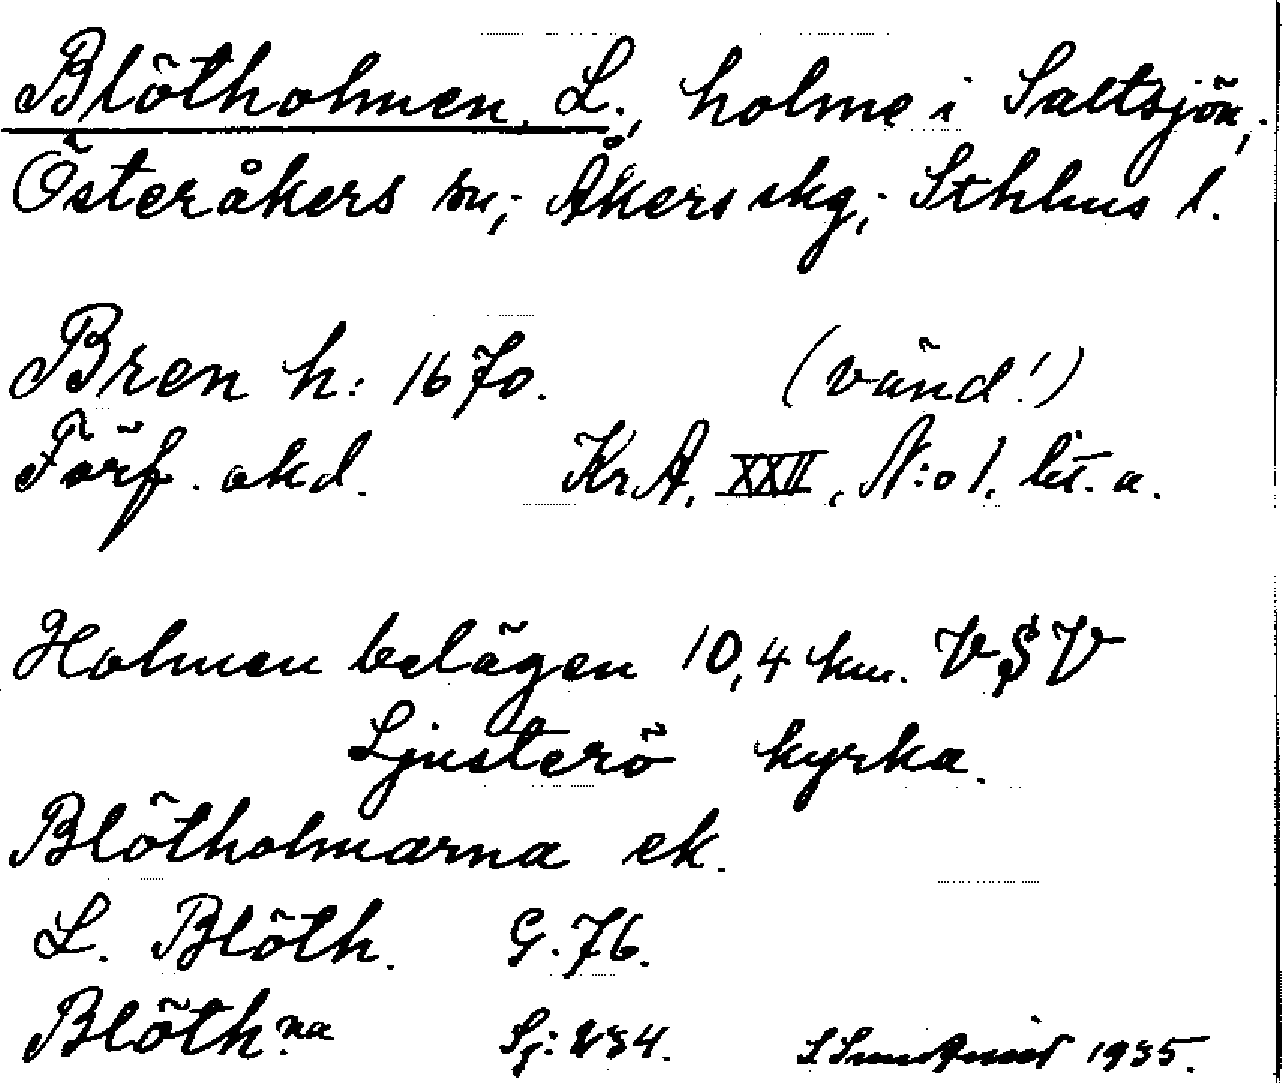 Blötholmen, L., holme i Saltsjön,
Österåkers sn, Åkers skg, Sthlms l.
Bren h: 1670. (vänd!)
Förf. okd. KrA, XXII, N:o 1, lit. a.
Holmen belägen 10,4 km. VSV
Ljusterö kyrka.
Blötholmarna ek.
L. Blöth. G. 76.
Blöth:na Sj: 234. 1935.